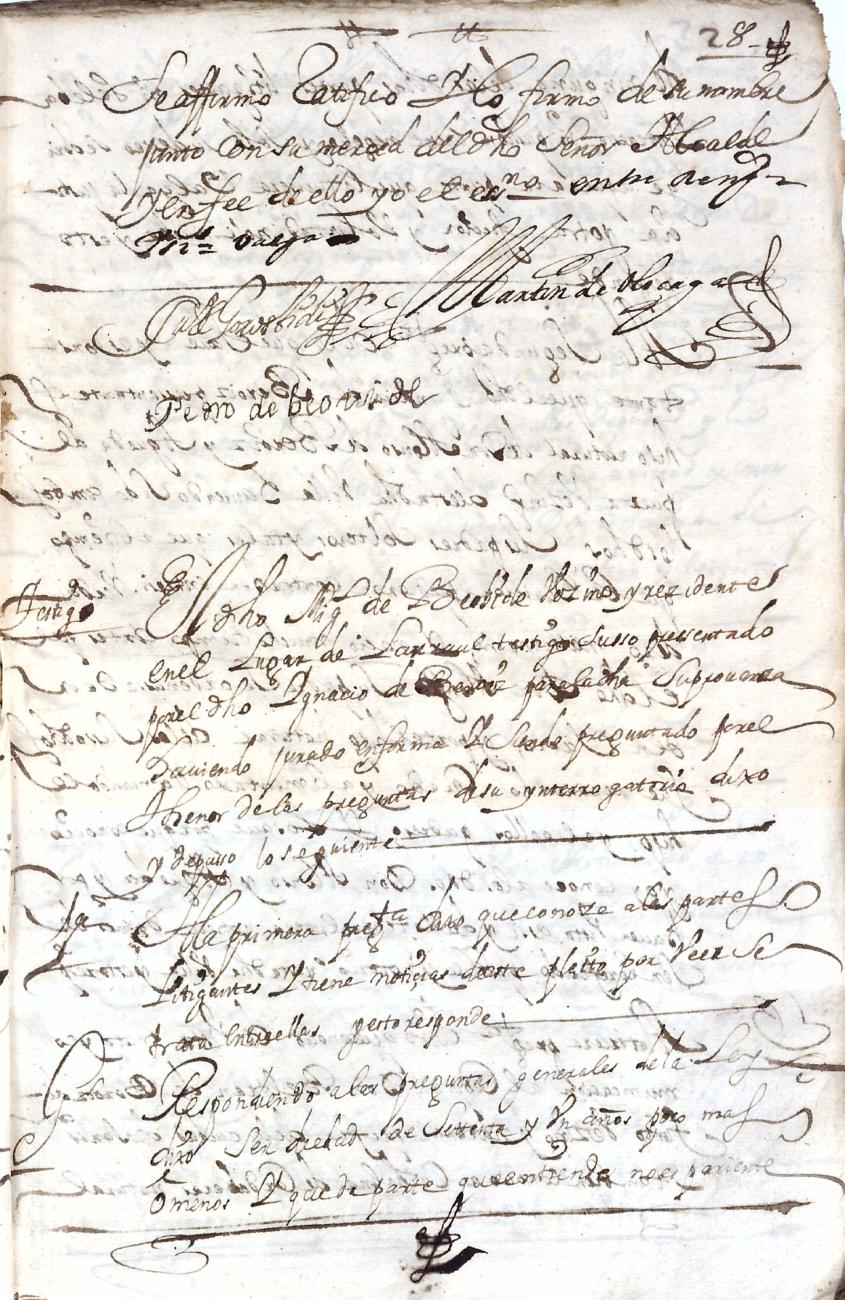 28
Se affirmo Ratifico Y lo firmo de su nombre
junto Con su merzed del dho Señor Alcalde
Y en fee de ello yo el essno entre
Martin de olozaga
Pedro de beobide
Testigo
El dho Migl de Beobide Vezino y rezidente
en el Lugar de Larraul testigo susso presentado
por el dho Ygnacio de para la dha Su provanza
haviendo jurado en forma Y Siendo preguntado por el
thenor de las preguntas de su ynterrogatorio dixo
y depusso lo seguiente
1a
A la primera pregta dixo que conoze a las partes
Litigantes Y tiene noticias de este pleito por Veer Se
trata entre ellas y esto responde
Respondiendo a las preguntas generales de la Ley
dixo Ser de hedad de Settenta y Un años poco mas
o menos Y que de parte que entiende no es pariente